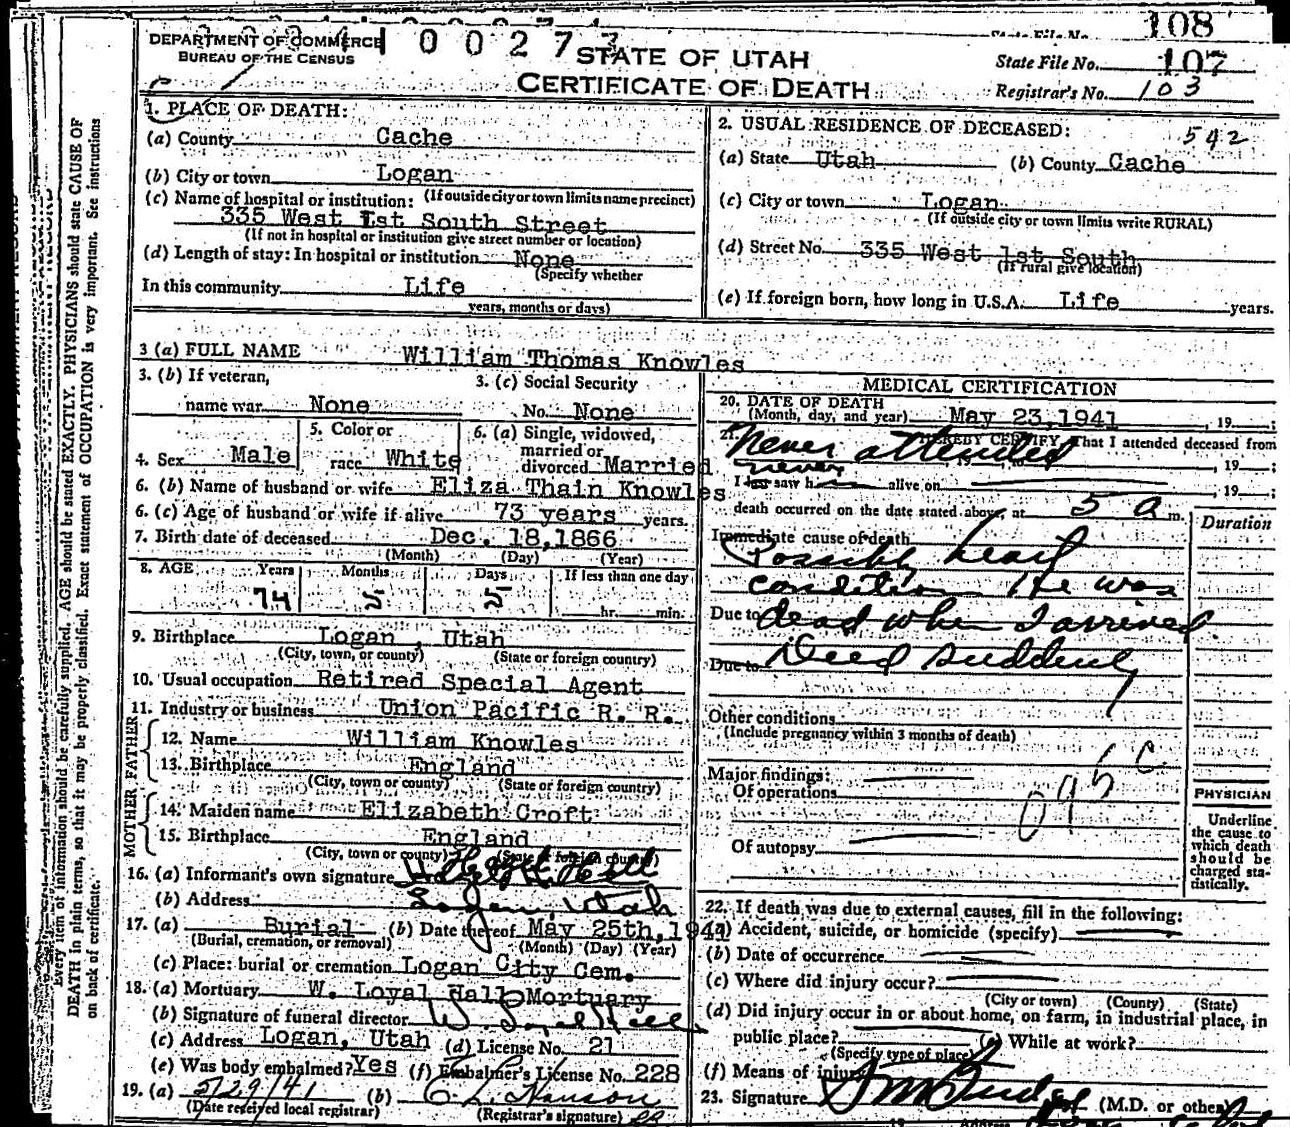 108
DEPARTMENT OF COMMERCE
BUREAU OF THE CENSUS
00273
STATE OF UTAH
CERTIFICATE OF DEATH
State File No. 107
Registrar's No. 103
1. PLACE OF DEATH:
(a) County Cache
(b) City or town Logan
(If outside city or town limits name precinct)
(c) Name of hospital or institution:
335 West 1st South Street
(If not in hospital or institution give street number or location)
(d) Length of stay: In hospital or institution None
(Specify whether
In this community Life
years, months or days)
2. USUAL RESIDENCE OF DECEASED: 542
(a) State Utah (b) County Cache
(c) City or town Logan
(If outside city or town limits write RURAL)
(d) Street No. 335 West 1st South
(If rural give location)
(e) If foreign born, how long in U.S.A. Life years.
3 (a) FULL NAME William Thomas Knowles
3. (b) If veteran,
name war None
3. (c) Social Security
No. None
4. Sex Male
5. Color or
race White
6. (a) Single, widowed,
married or
divorced Married
6. (b) Name of husband or wife Eliza Thain Knowles
6. (c) Age of husband or wife if alive 73 years years.
7. Birth date of deceased Dec. 18, 1866
(Month) (Day) (Year)
8. AGE Years Months Days If less than one day
74 5 5 hr. min.
9. Birthplace Logan, Utah
(City, town, or county) (State or foreign country)
10. Usual occupation Retired Special Agent
11. Industry or business Union Pacific R. R.
FATHER
12. Name William Knowles
13. Birthplace England
(City, town or county) (State or foreign country)
MOTHER
14. Maiden name Elizabeth Croft
15. Birthplace England
(City, town or county) (State or foreign country)
16. (a) Informant's own signature
(b) Address Logan, Utah
17. (a) Burial (b) Date thereof May 25th, 1941
(Burial, cremation, or removal) (Month) (Day) (Year)
(c) Place: burial or cremation Logan City Cem.
18. (a) Mortuary W. Loyal Hall Mortuary
(b) Signature of funeral director W. Loyal Hall
(c) Address Logan, Utah (d) License No. 21
(e) Was body embalmed? Yes (f) Embalmer's License No. 228
19. (a) 5/29/41 (b) C. L. Hanson
(Date received local registrar) (Registrar's signature)
MEDICAL CERTIFICATION
20. DATE OF DEATH
(Month, day, and year) May 23, 1941, 19
21. I HEREBY CERTIFY, That I attended deceased from
Never attended
, 19 , to , 19 ;
never
I last saw h alive on , 19 ;
death occurred on the date stated above, at 5 a m.
Duration
Immediate cause of death
Possibly heart
condition He was
Due to dead when I arrived
Due to Died suddenly
Other conditions
(Include pregnancy within 3 months of death)
Major findings:
Of operations
095 c
Of autopsy
PHYSICIAN
Underline
the cause to
which death
should be
charged sta-
tistically.
22. If death was due to external causes, fill in the following:
(a) Accident, suicide, or homicide (specify)
(b) Date of occurrence
(c) Where did injury occur?
(City or town) (County) (State)
(d) Did injury occur in or about home, on farm, in industrial place, in
public place? (e) While at work?
(Specify type of place)
(f) Means of injury
23. Signature (M.D. or other)
Every item of information should be carefully supplied. AGE should be stated EXACTLY. PHYSICIANS should state CAUSE OF
DEATH in plain terms, so that it may be properly classified. Exact statement of OCCUPATION is very important. See instructions
on back of certificate.